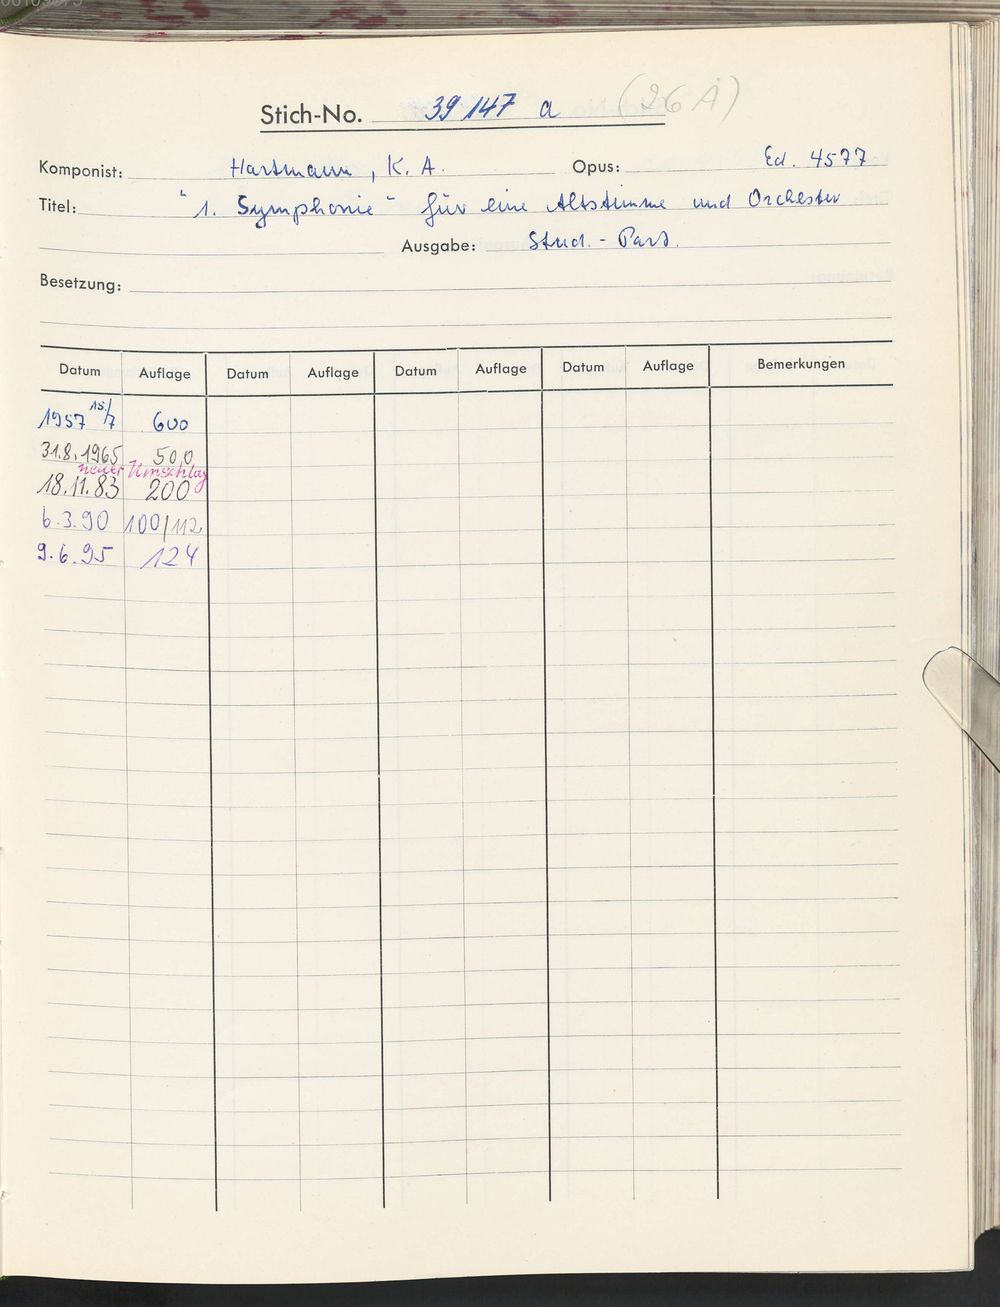 Stich-No. 39 147 a (26 A)
Komponist: Hartmann, K. A. Opus: Ed. 4577
Titel: "1. Symphonie" für eine Altstimme und Orchester
Ausgabe: Stud. - Part.
Besetzung:
Datum Auflage Datum Auflage Datum Auflage Datum Auflage Bemerkungen
1957 15/7 600
31.8.1965 500
neuer Umschlag
18.11.83 200
6.3.90 100/112
9.6.95 124